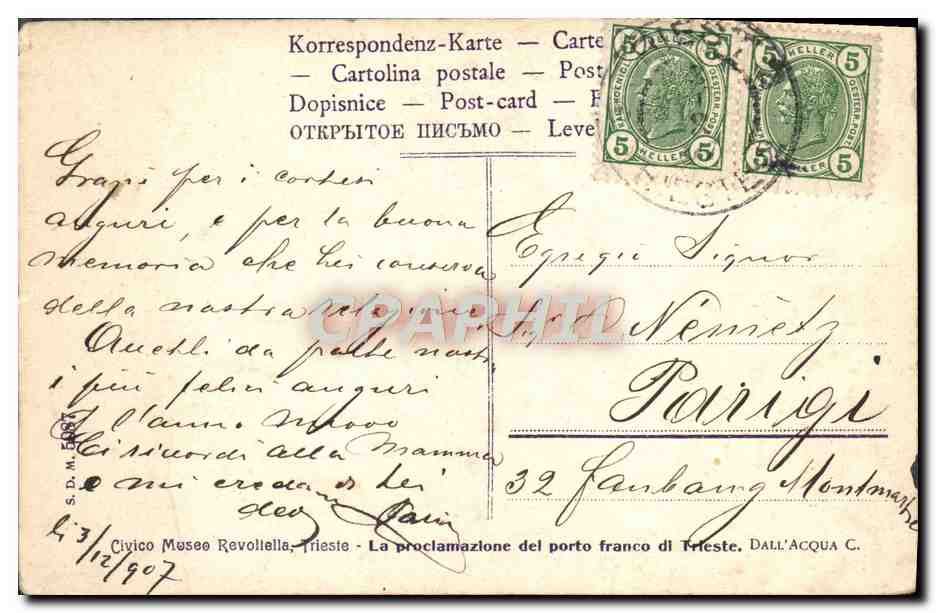 Korrespondenz-Karte — Carte
— Cartolina postale — Post
Dopisnice — Post-card —
ОТКРЫТОЕ ПИСЬМО — Leve
5 5
HELLER
5 5
5 HELLER 5
5 5
Grazie per i cortesi
auguri, e per la buona
memoria che Lei conserva
della nostra
Anch'Ella da parte nostra
i più felici auguri
l'anno nuovo
Mi ricordi alla Mamma
e mi creda di Lei
dev
li 3/12/907
Egregio Signor
Sig. Nemietz
Parigi
32 Faubourg Montmartre
CRAPHIL
S. D. M. 5087
Civico Museo Revoltella, Trieste - La proclamazione del porto franco di Trieste. DALL'ACQUA C.